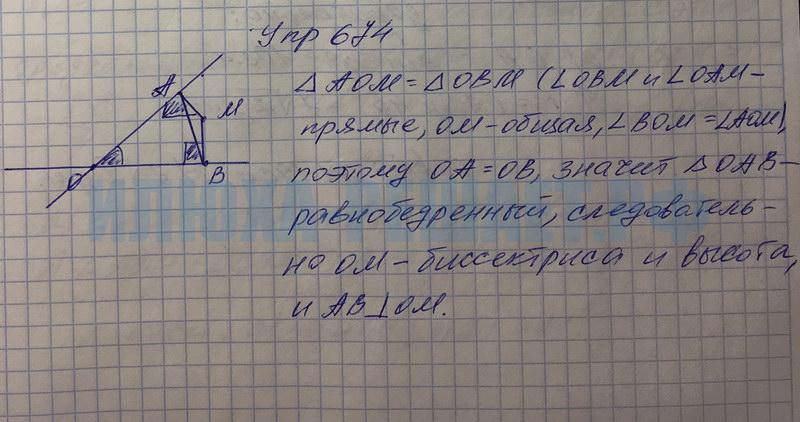 Упр 674
△ AOM = △ OBM (∠OBM и ∠OAM -
прямые, OM - общая, ∠BOM = ∠AOM),
поэтому OA = OB, значит △ OAB -
равнобедренный, следователь-
но OM - биссектриса и высота,
и AB ⊥ OM.
A
M
O
B